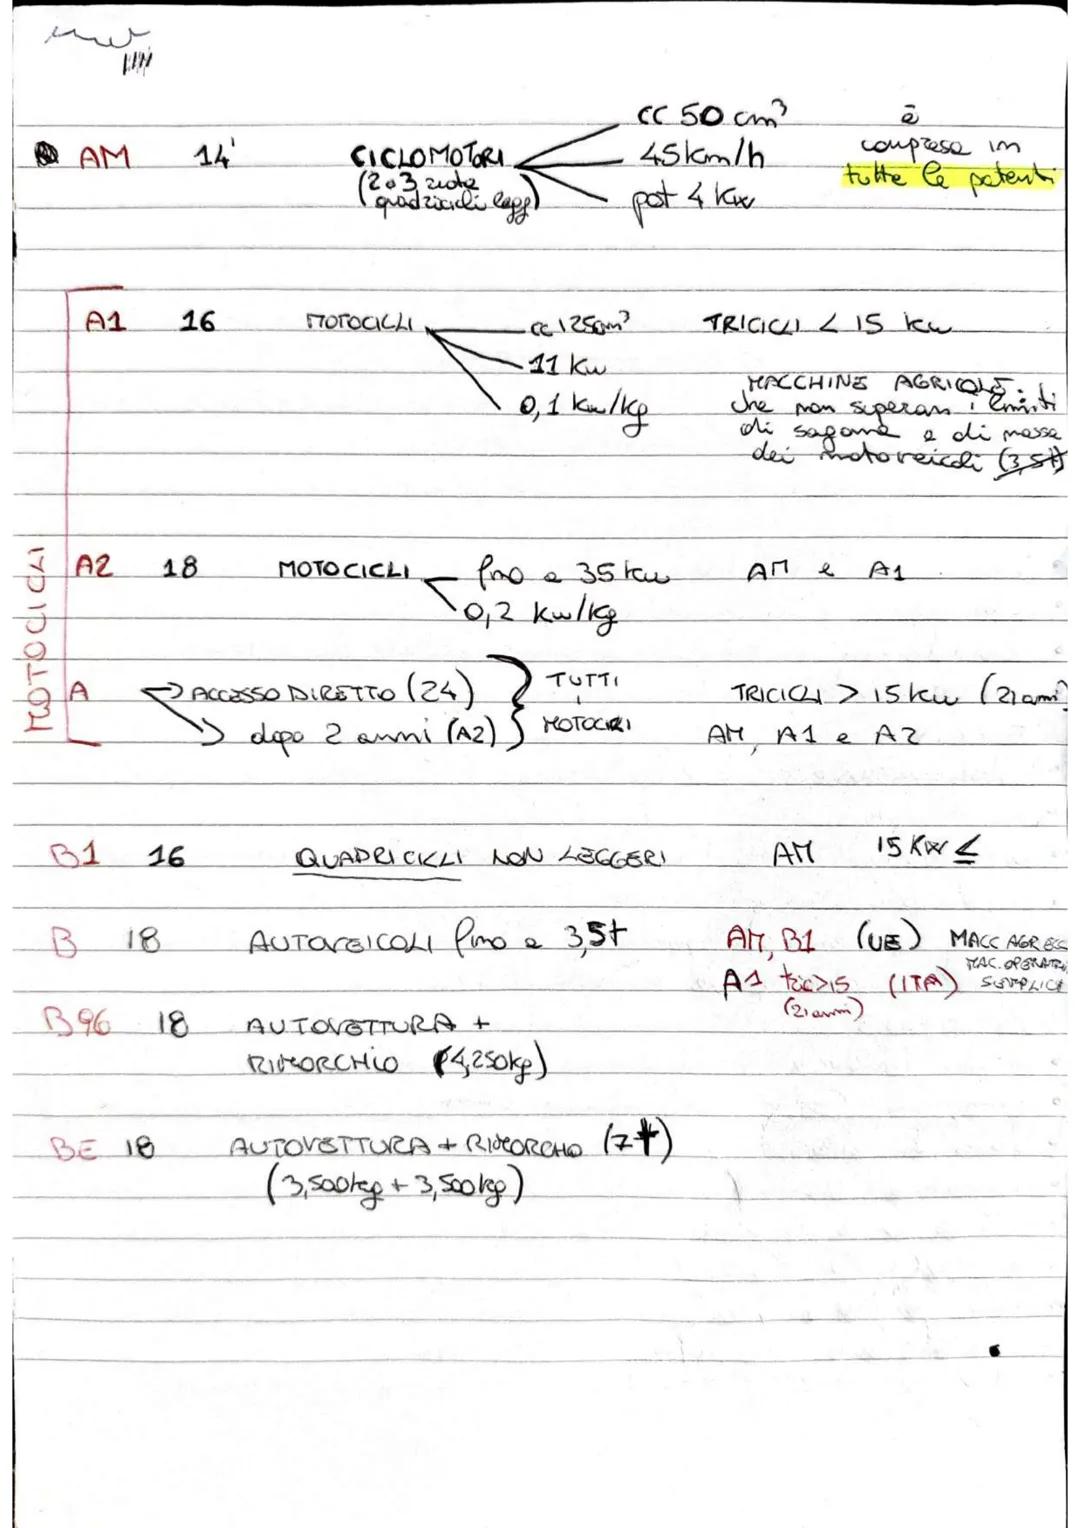 AM 14 CICLOMOTORI CC 50 cm³ è
(2 o 3 ruote 45 km/h compresa in
quadricicli legg) pot 4 kw tutte le patenti
MOTOCICLI
A1 16 MOTOCICLI cc 125cm³ TRICICLI < 15 kw
11 kw
0,1 kw/kg MACCHINE AGRICOLE
che non superano i limiti
di sagoma e di massa
dei motoveicoli (3,5t)
A2 18 MOTOCICLI fino a 35 kw AM e A1
0,2 kw/kg
A ACCESSO DIRETTO (24) TUTTI TRICICLI > 15 kw (21 anni)
dopo 2 anni (A2) MOTOCICLI AM, A1 e A2
B1 16 QUADRICICLI NON LEGGERI AM 15 KW ≤
B 18 AUTOVEICOLI fino a 3,5t AM, B1 (UE) MACC AGR ECC
MAC. OPERATRI
A1 tric>15 (ITA) SEMPLICI
(21 anni)
B96 18 AUTOVETTURA +
RIMORCHIO (4,250kg)
BE 18 AUTOVETTURA + RIMORCHIO (7t)
(3,500kg + 3,500kg)